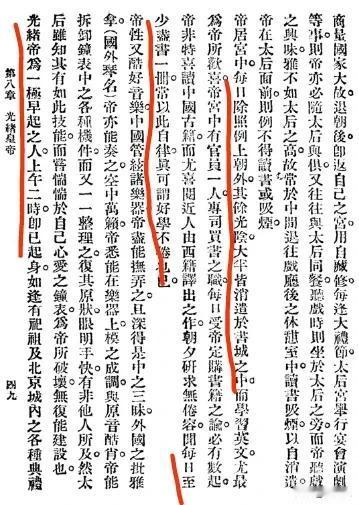 商量國家大故退朝後即返自己之宮用自藏修每逢大禮節太后宮舉行宴會演劇
等事則帝亦必隨太后與俱又往往與太后同餐聽戲時則坐於太后之旁而帝聽戲
之興味雅不如太后之高故帝於中間退往戲廳後之休憩室中讀書吸煙以自消遣
帝在太后面前則例不得讀書或吸煙
帝居宮中每日除照例上朝外其餘光陰大半皆消遣於書城之中而學習英文尤最
爲帝所歡喜帝宮中有官員一人專司買書之職每日受帝定購書籍之諭必有數起
帝非特喜讀中國古籍而尤喜閱近人由西籍譯出之作朝夕研求無倦容聞每日至
少盡書一冊常以此自律眞可謂好學不倦也已
帝性又酷好音樂中國管絃諸樂器帝盡能撫弄之且深得是中之三昧外國之批雅
拿(國外琴名)帝亦能奏之空中萬籟帝悉能在樂器上模之成調與原音酷肖帝能
拆卸鐘表中之各種機件而又一一整理之復其原狀眼明手快有非他人所及然太
后雖知其有如此技能而嘗惴惴於自己心愛之鐘表爲帝所破壞無復能建設也
光緒帝爲一極早起之人上午二時即已起身如逢有祀祖及北京城內之各種典禮
第八章 光緒皇帝
四九